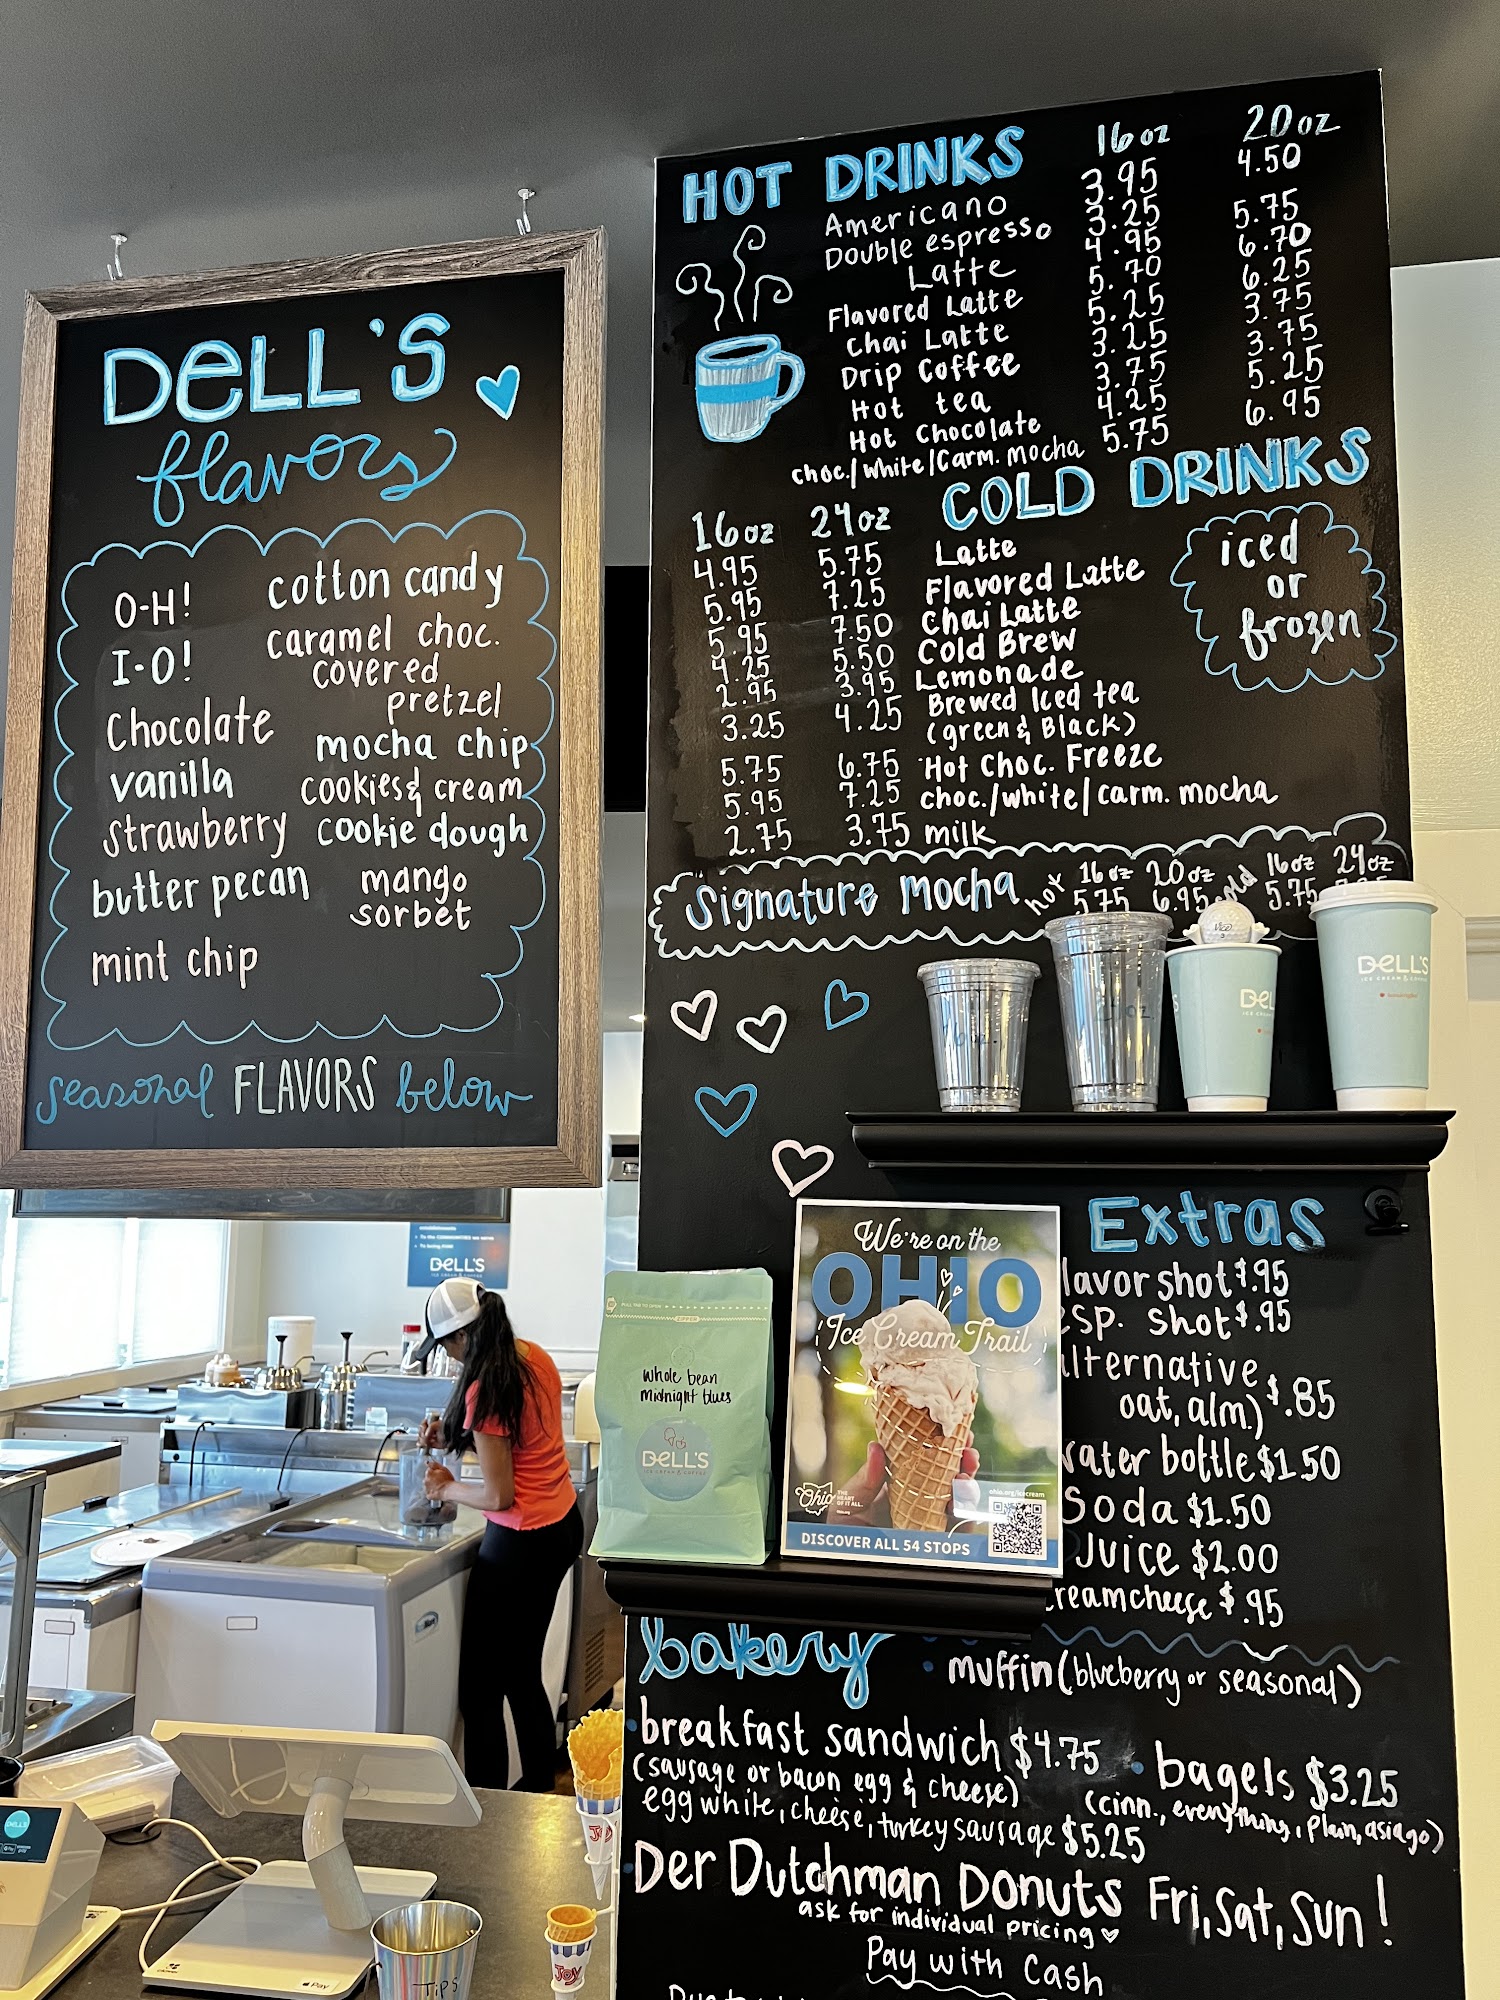 DELL'S
flavors
O-H!
I-O!
Chocolate
vanilla
Strawberry
butter pecan
mint chip
cotton candy
caramel choc.
covered
pretzel
mocha chip
cookies & cream
cookie dough
mango
sorbet
seasonal FLAVORS below
HOT DRINKS 16oz 20oz
Americano 3.95 4.50
Double espresso 3.25
Latte 4.95 5.75
Flavored Latte 5.70 6.70
Chai Latte 5.25 6.25
Drip Coffee 3.25 3.75
Hot tea 3.75 3.75
Hot Chocolate 4.25 5.25
choc./white/Carm. mocha 5.75 6.95
COLD DRINKS
16oz 24oz
iced
or
frozen
4.95 5.75 Latte
5.95 7.25 Flavored Latte
5.95 7.50 Chai Latte
4.25 5.50 Cold Brew
2.95 3.95 Lemonade
3.25 4.25 Brewed Iced tea
(green & Black)
5.75 6.75 Hot Choc. Freeze
5.95 7.25 choc./white/carm. mocha
2.75 3.75 milk
Signature Mocha hot 16oz 20oz cold 16oz 24oz
5.75 6.95 5.75
DELL'S
ICE CREAM & COFFEE
DEL
Extras
lavor shot $.95
esp. shot $.95
lternative
oat, alm.) $.85
water bottle $1.50
Soda $1.50
Juice $2.00
creamcheese $.95
We're on the
OHIO
Ice Cream Trail
Ohio THE HEART OF IT ALL.
ohio.org/icecream
DISCOVER ALL 54 STOPS
whole bean
midnight blues
DELL'S
ICE CREAM & COFFEE
DELL'S
bakery
muffin (blueberry or seasonal)
breakfast sandwich $4.75
(sausage or bacon egg & cheese)
egg white, cheese, turkey sausage $5.25
bagels $3.25
(cinn., everything, plain, asiago)
Der Dutchman Donuts Fri, Sat, Sun!
ask for individual pricing
Pay with Cash
TIPS
JOY
JOY
Pay